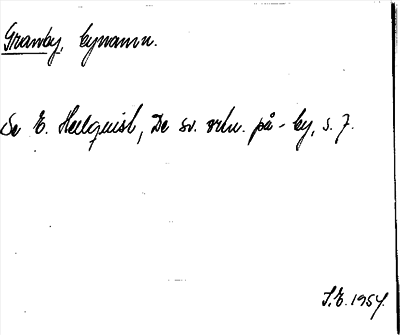 Granby, bynamn.
Se E. Hellquist, De sv. ortn. på -by, s. 7.
S.E. 1954.